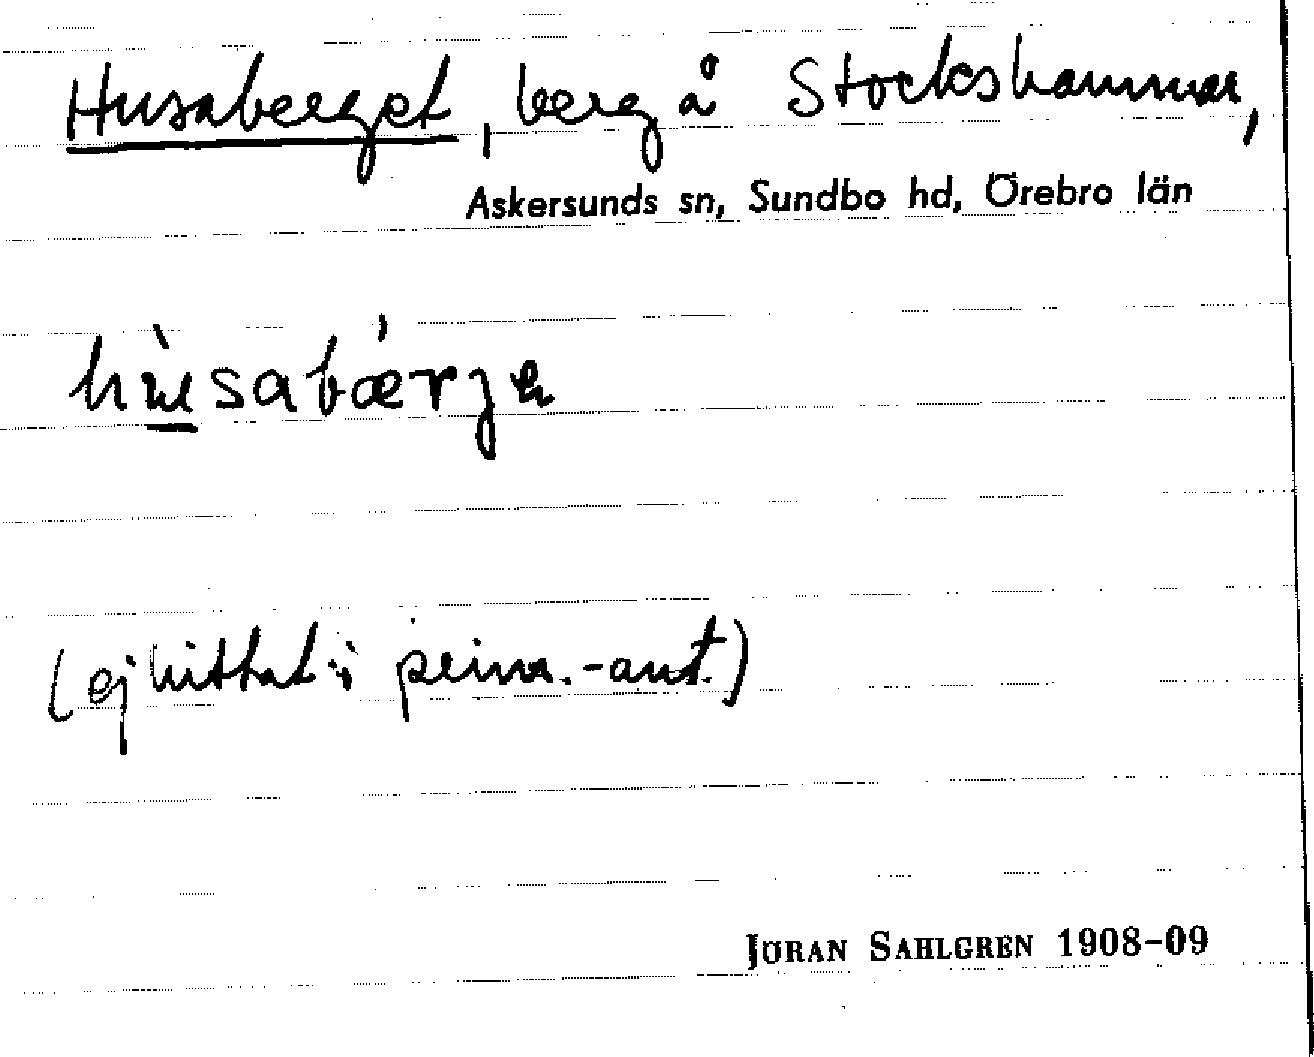 Husaberget, berg å Stockshammar,
Askersunds sn, Sundbo hd, Örebro län
hùsabǽrje
(ej hittat i primärant.)
JÖRAN SAHLGREN 1908-09